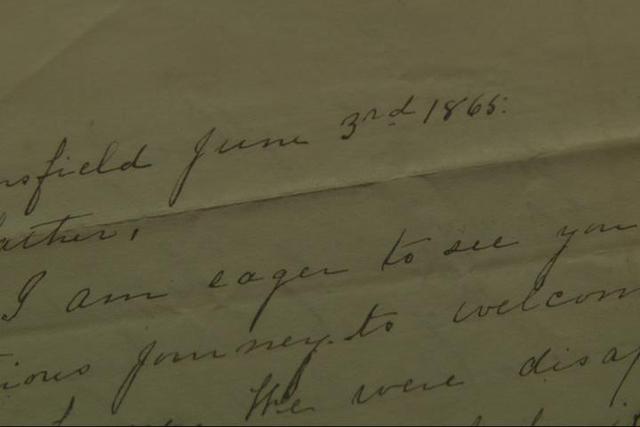 nsfield June 3rd 1865.
ather,
I am eager to see you
ious journey to welcom
the were disap